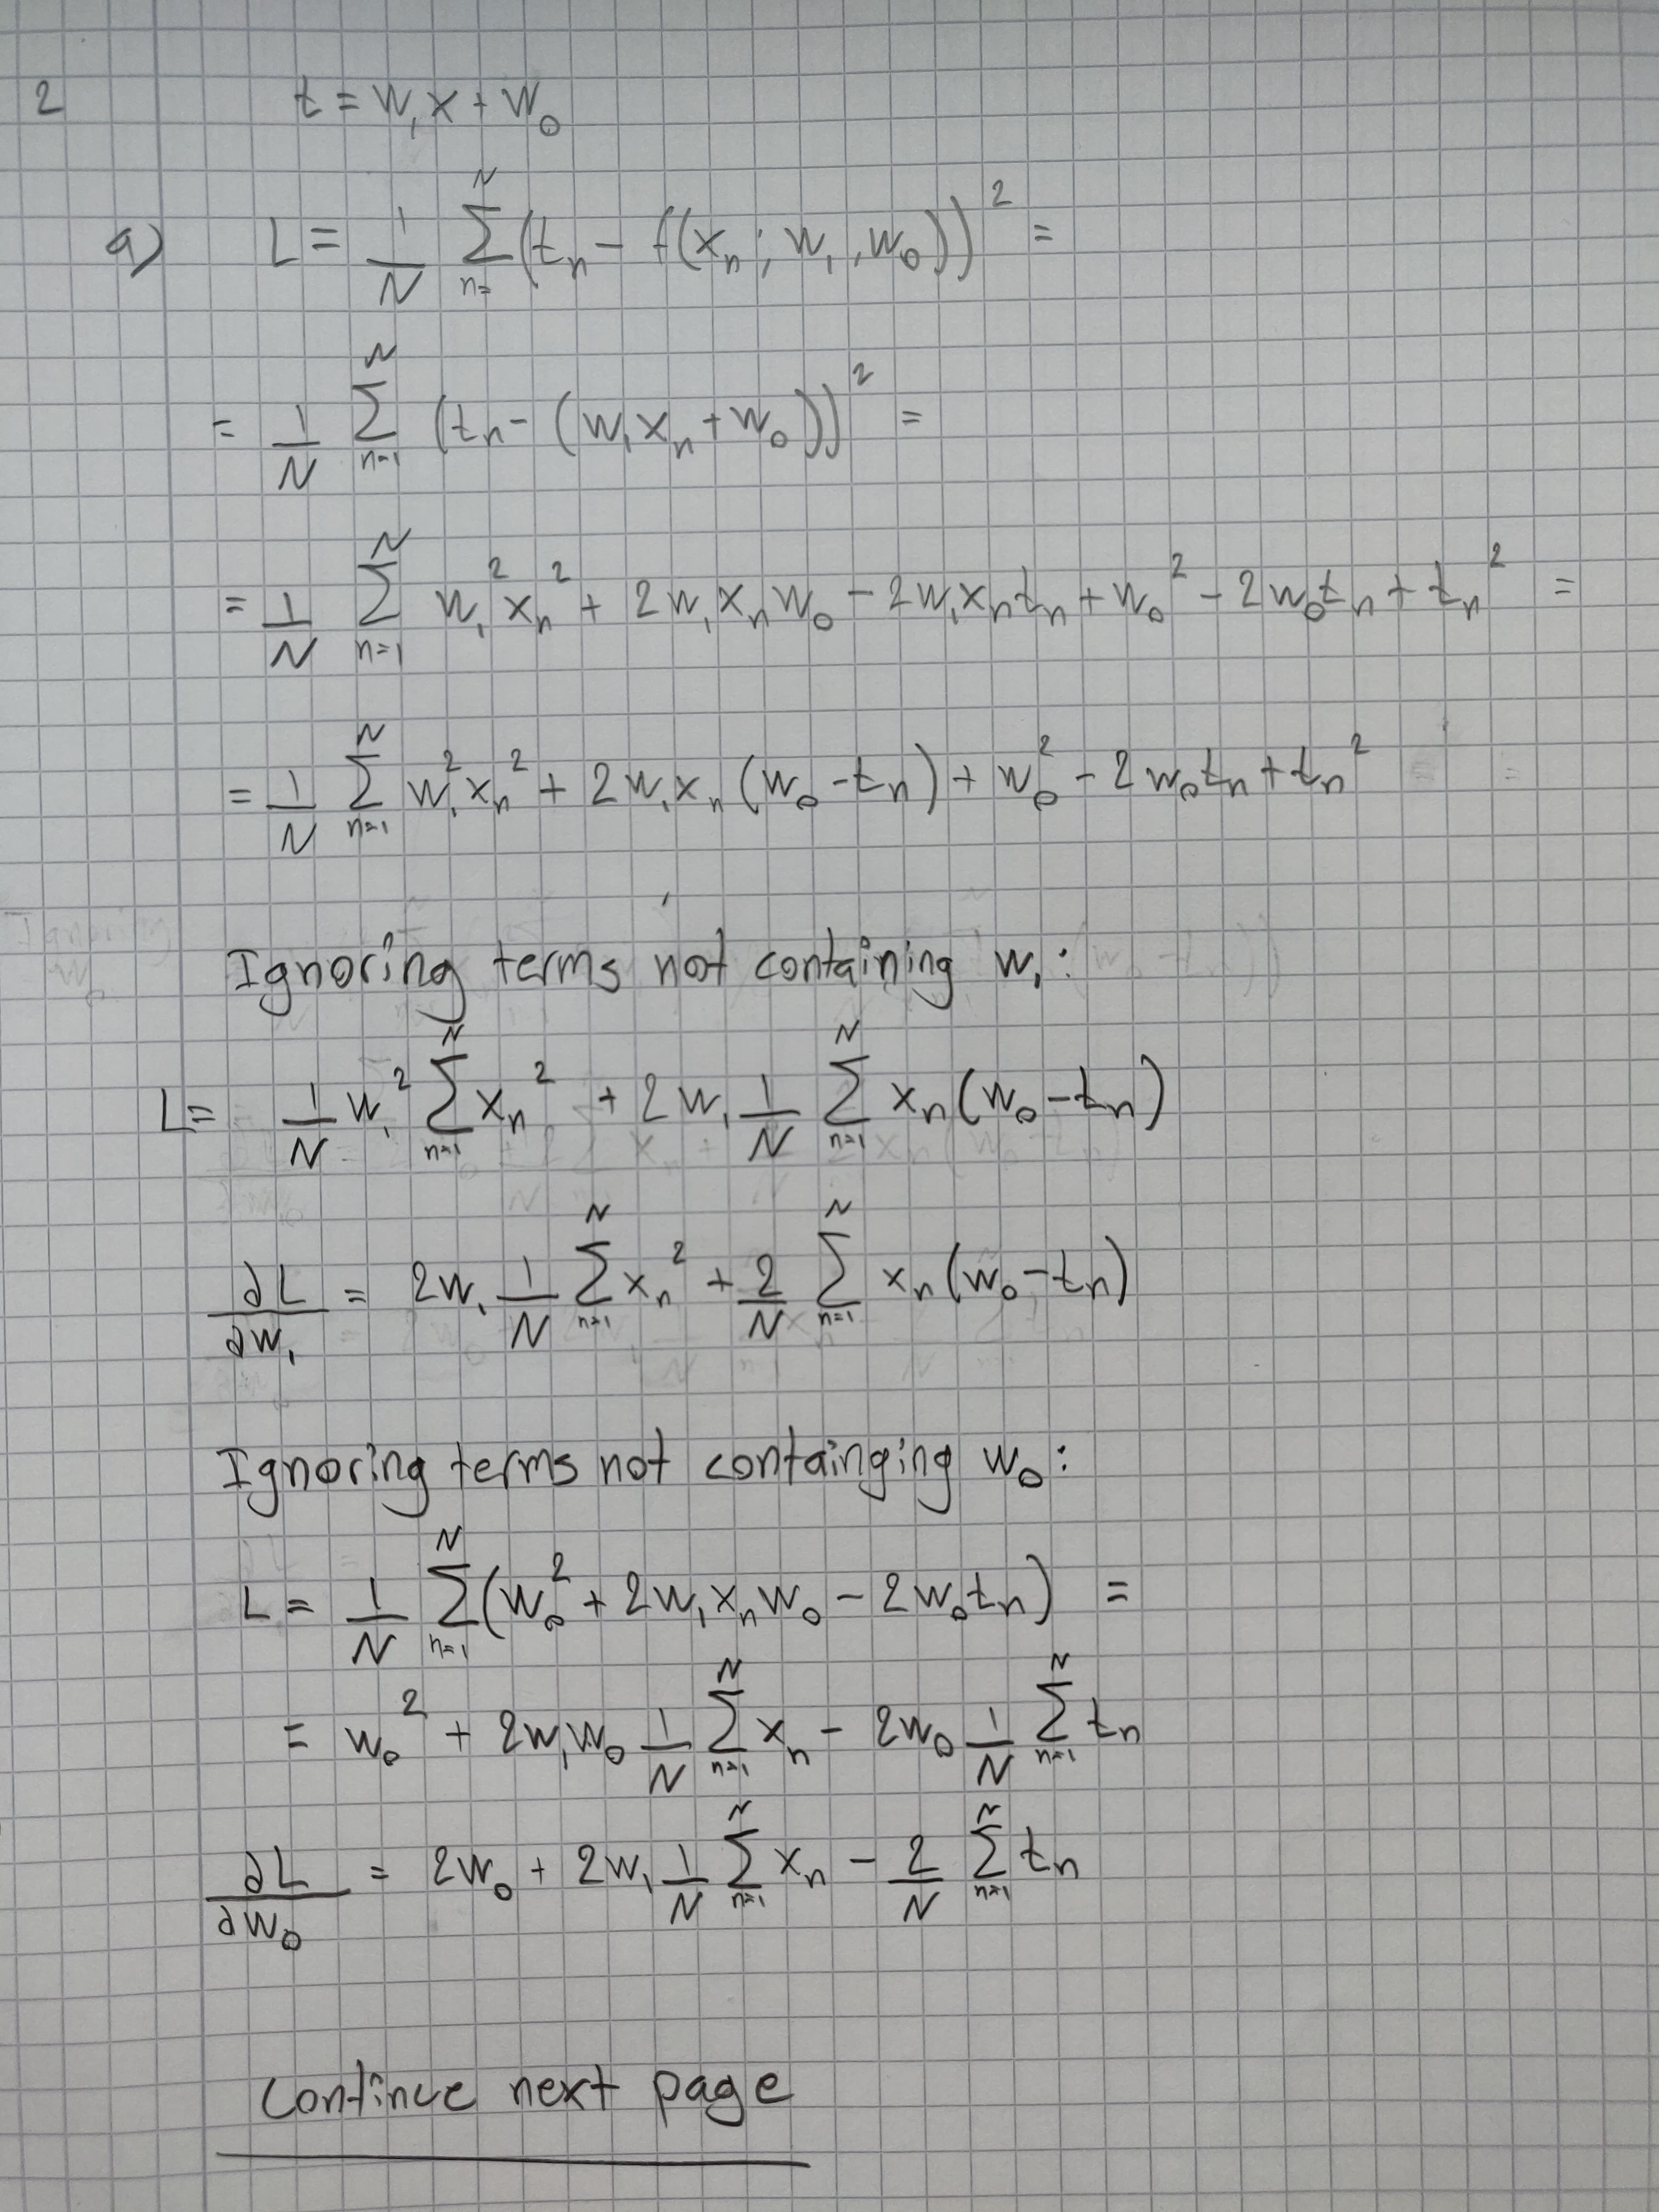 2 t = w₁x + w₀
a) L = 1/N ∑_{n=}^{N} (t_n - f(x_n; w₁, w₀))² =
= 1/N ∑_{n=1}^{N} (t_n - (w₁x_n + w₀))² =
= 1/N ∑_{n=1}^{N} w₁²x_n² + 2w₁x_nw₀ - 2w₁x_nt_n + w₀² - 2w₀t_n + t_n² =
= 1/N ∑_{n=1}^{N} w₁²x_n² + 2w₁x_n(w₀ - t_n) + w₀² - 2w₀t_n + t_n²
Ignoring terms not containing w₁:
L = 1/N w₁² ∑_{n=1}^{N} x_n² + 2w₁ 1/N ∑_{n=1}^{N} x_n(w₀ - t_n)
∂L/∂w₁ = 2w₁ 1/N ∑_{n=1}^{N} x_n² + 2/N ∑_{n=1}^{N} x_n(w₀ - t_n)
Ignoring terms not containging w₀:
L = 1/N ∑_{n=1}^{N} (w₀² + 2w₁x_nw₀ - 2w₀t_n) =
= w₀² + 2w₁w₀ 1/N ∑_{n=1}^{N} x_n - 2w₀ 1/N ∑_{n=1}^{N} t_n
∂L/∂w₀ = 2w₀ + 2w₁ 1/N ∑_{n=1}^{N} x_n - 2/N ∑_{n=1}^{N} t_n
Continue next page